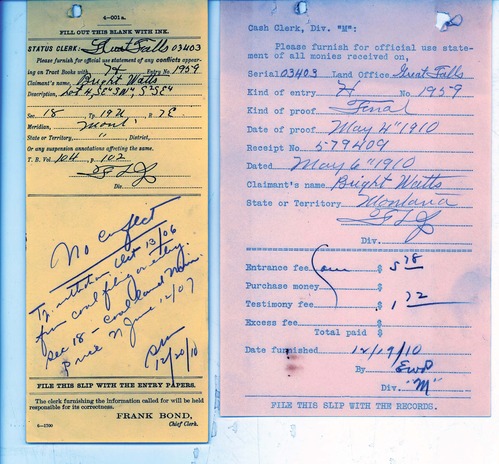 4—001a.
FILL OUT THIS BLANK WITH INK.
STATUS CLERK: Great Falls 03403
Please furnish for official use statement of any conflicts appear-
ing on Tract Books with H Entry No. 1959
Claimant's name, Bright Watts
Description, Lot 4, SE4 SW4, S2SE4
Sec. 18, Tp. 19N, R. 7E
Meridian, Mont.
State or Territory, " District,
Or any suspension annotations affecting the same.
T. B. Vol. 104, p. 102
Div.
No conflict
Tp. withdrawn Oct 13/06
from coal filing or entry.
Sec 18 - Coal Land
Price June 12/07
12/20/10
FILE THIS SLIP WITH THE ENTRY PAPERS.
The clerk furnishing the information called for will be held
responsible for its correctness.
FRANK BOND,
Chief Clerk.
6—1700
Cash Clerk, Div. "M":
Please furnish for official use state-
ment of all monies received on,
Serial 03403 Land Office Great Falls
Kind of entry H No. 1959
Kind of proof Final
Date of proof May 4" 1910
Receipt No. 579409
Dated May 6" 1910
Claimant's name Bright Watts
State or Territory Montana
Div.
Entrance fee Com $ 5 78
Purchase money $
Testimony fee $ 1 72
Excess fee $
Total paid $
Date furnished 12/19/10
By EWP
Div. "M"
FILE THIS SLIP WITH THE RECORDS.